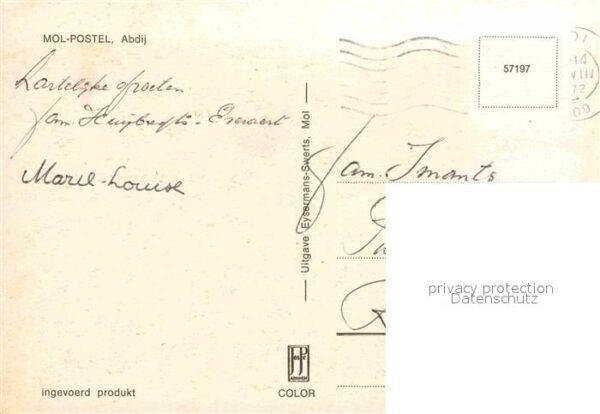 MOL-POSTEL, Abdij
Hartelijke groeten
fam. Huijbregts - Everaert
Marie-Louise
Uitgave Eysermans-Swerts, Mol
57197
14
VIII
72
fam. Imants
privacy protection
Datenschutz
JosPé
ARNHEM
ingevoerd produkt
COLOR